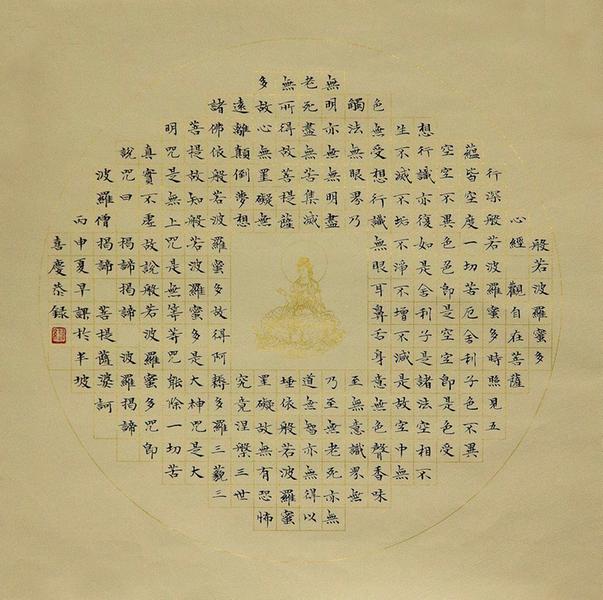 般若波羅蜜多
心經 觀自在菩薩
行深般若波羅蜜多時照見五
蘊皆空度一切苦厄舍利子色不異
空空不異色色即是空空即是色受
想行識亦復如是舍利子是諸法空相不
生不滅不垢不淨不增不減是故空中無
色無受想行識無眼耳鼻舌身意無色聲香味
觸法無眼界乃至無意識界無
無明亦無無明盡乃至無老死亦無
老死盡無苦集滅道無智亦無得以
無所得故菩提薩埵依般若波羅蜜
多故心無罣礙無罣礙故無有恐怖
遠離顛倒夢想究竟涅槃三世
諸佛依般若波羅蜜多故得阿耨多羅三藐三
菩提故知般若波羅蜜多是大神咒是大
明咒是無上咒是無等等咒能除一切苦
真實不虛故說般若波羅蜜多咒即
說咒曰 揭諦揭諦 波羅揭諦
波羅僧揭諦 菩提薩婆訶
丙申夏早課於半坡
喜慶恭錄